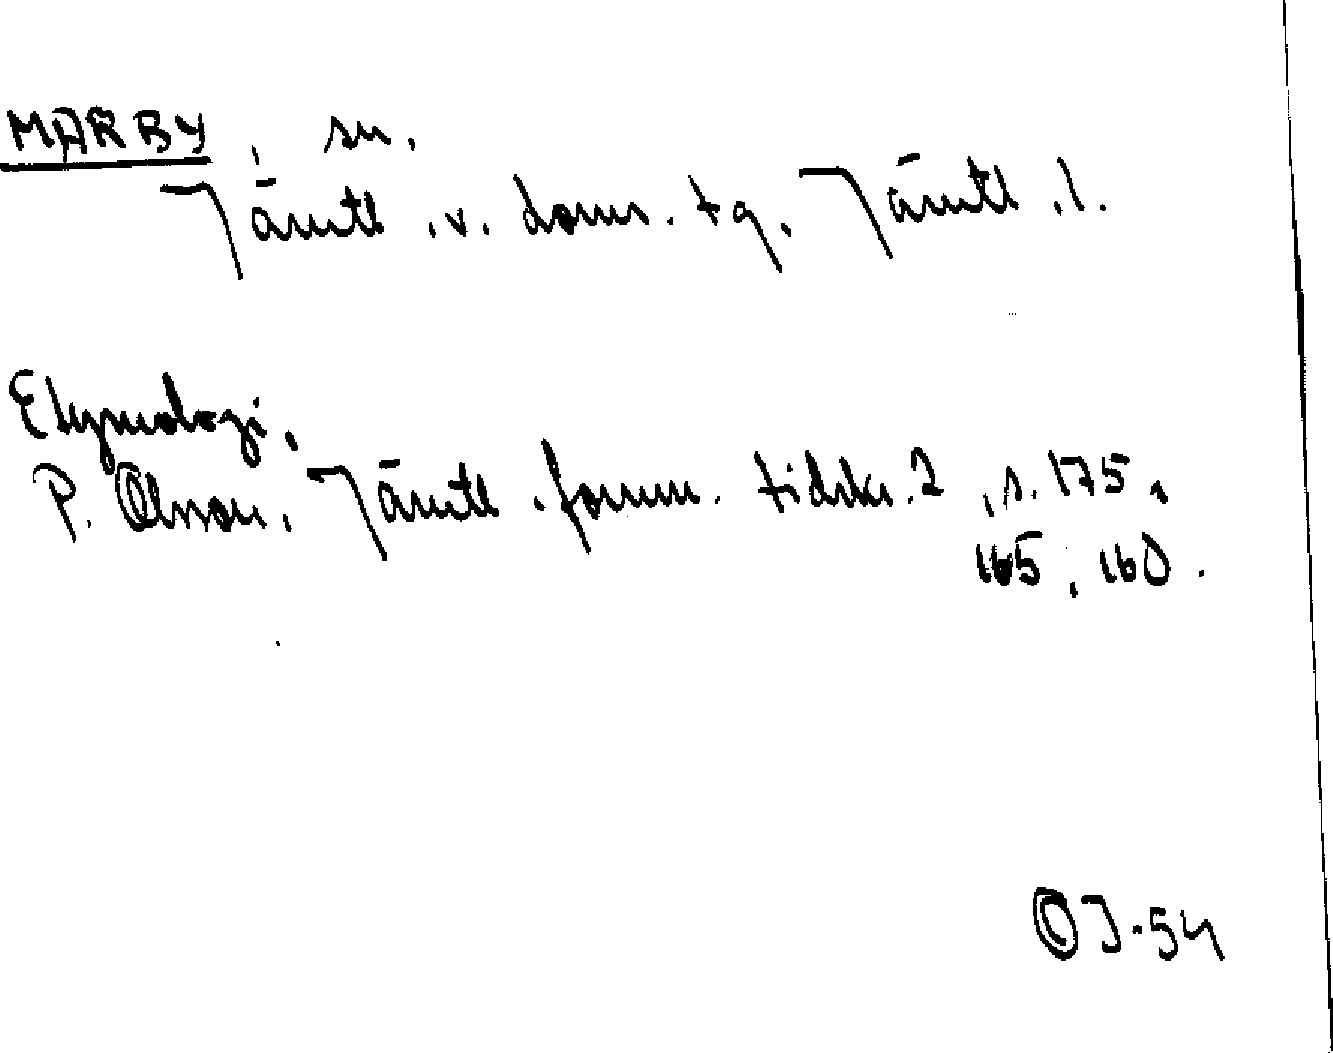 MARBY, sn.
Jämtl. v. doms. tg. Jämtl. l.
Etymologi.
P. Olsson, Jämtl. fornm. tidskr. 2, s. 175,
165, 160.
OJ-54